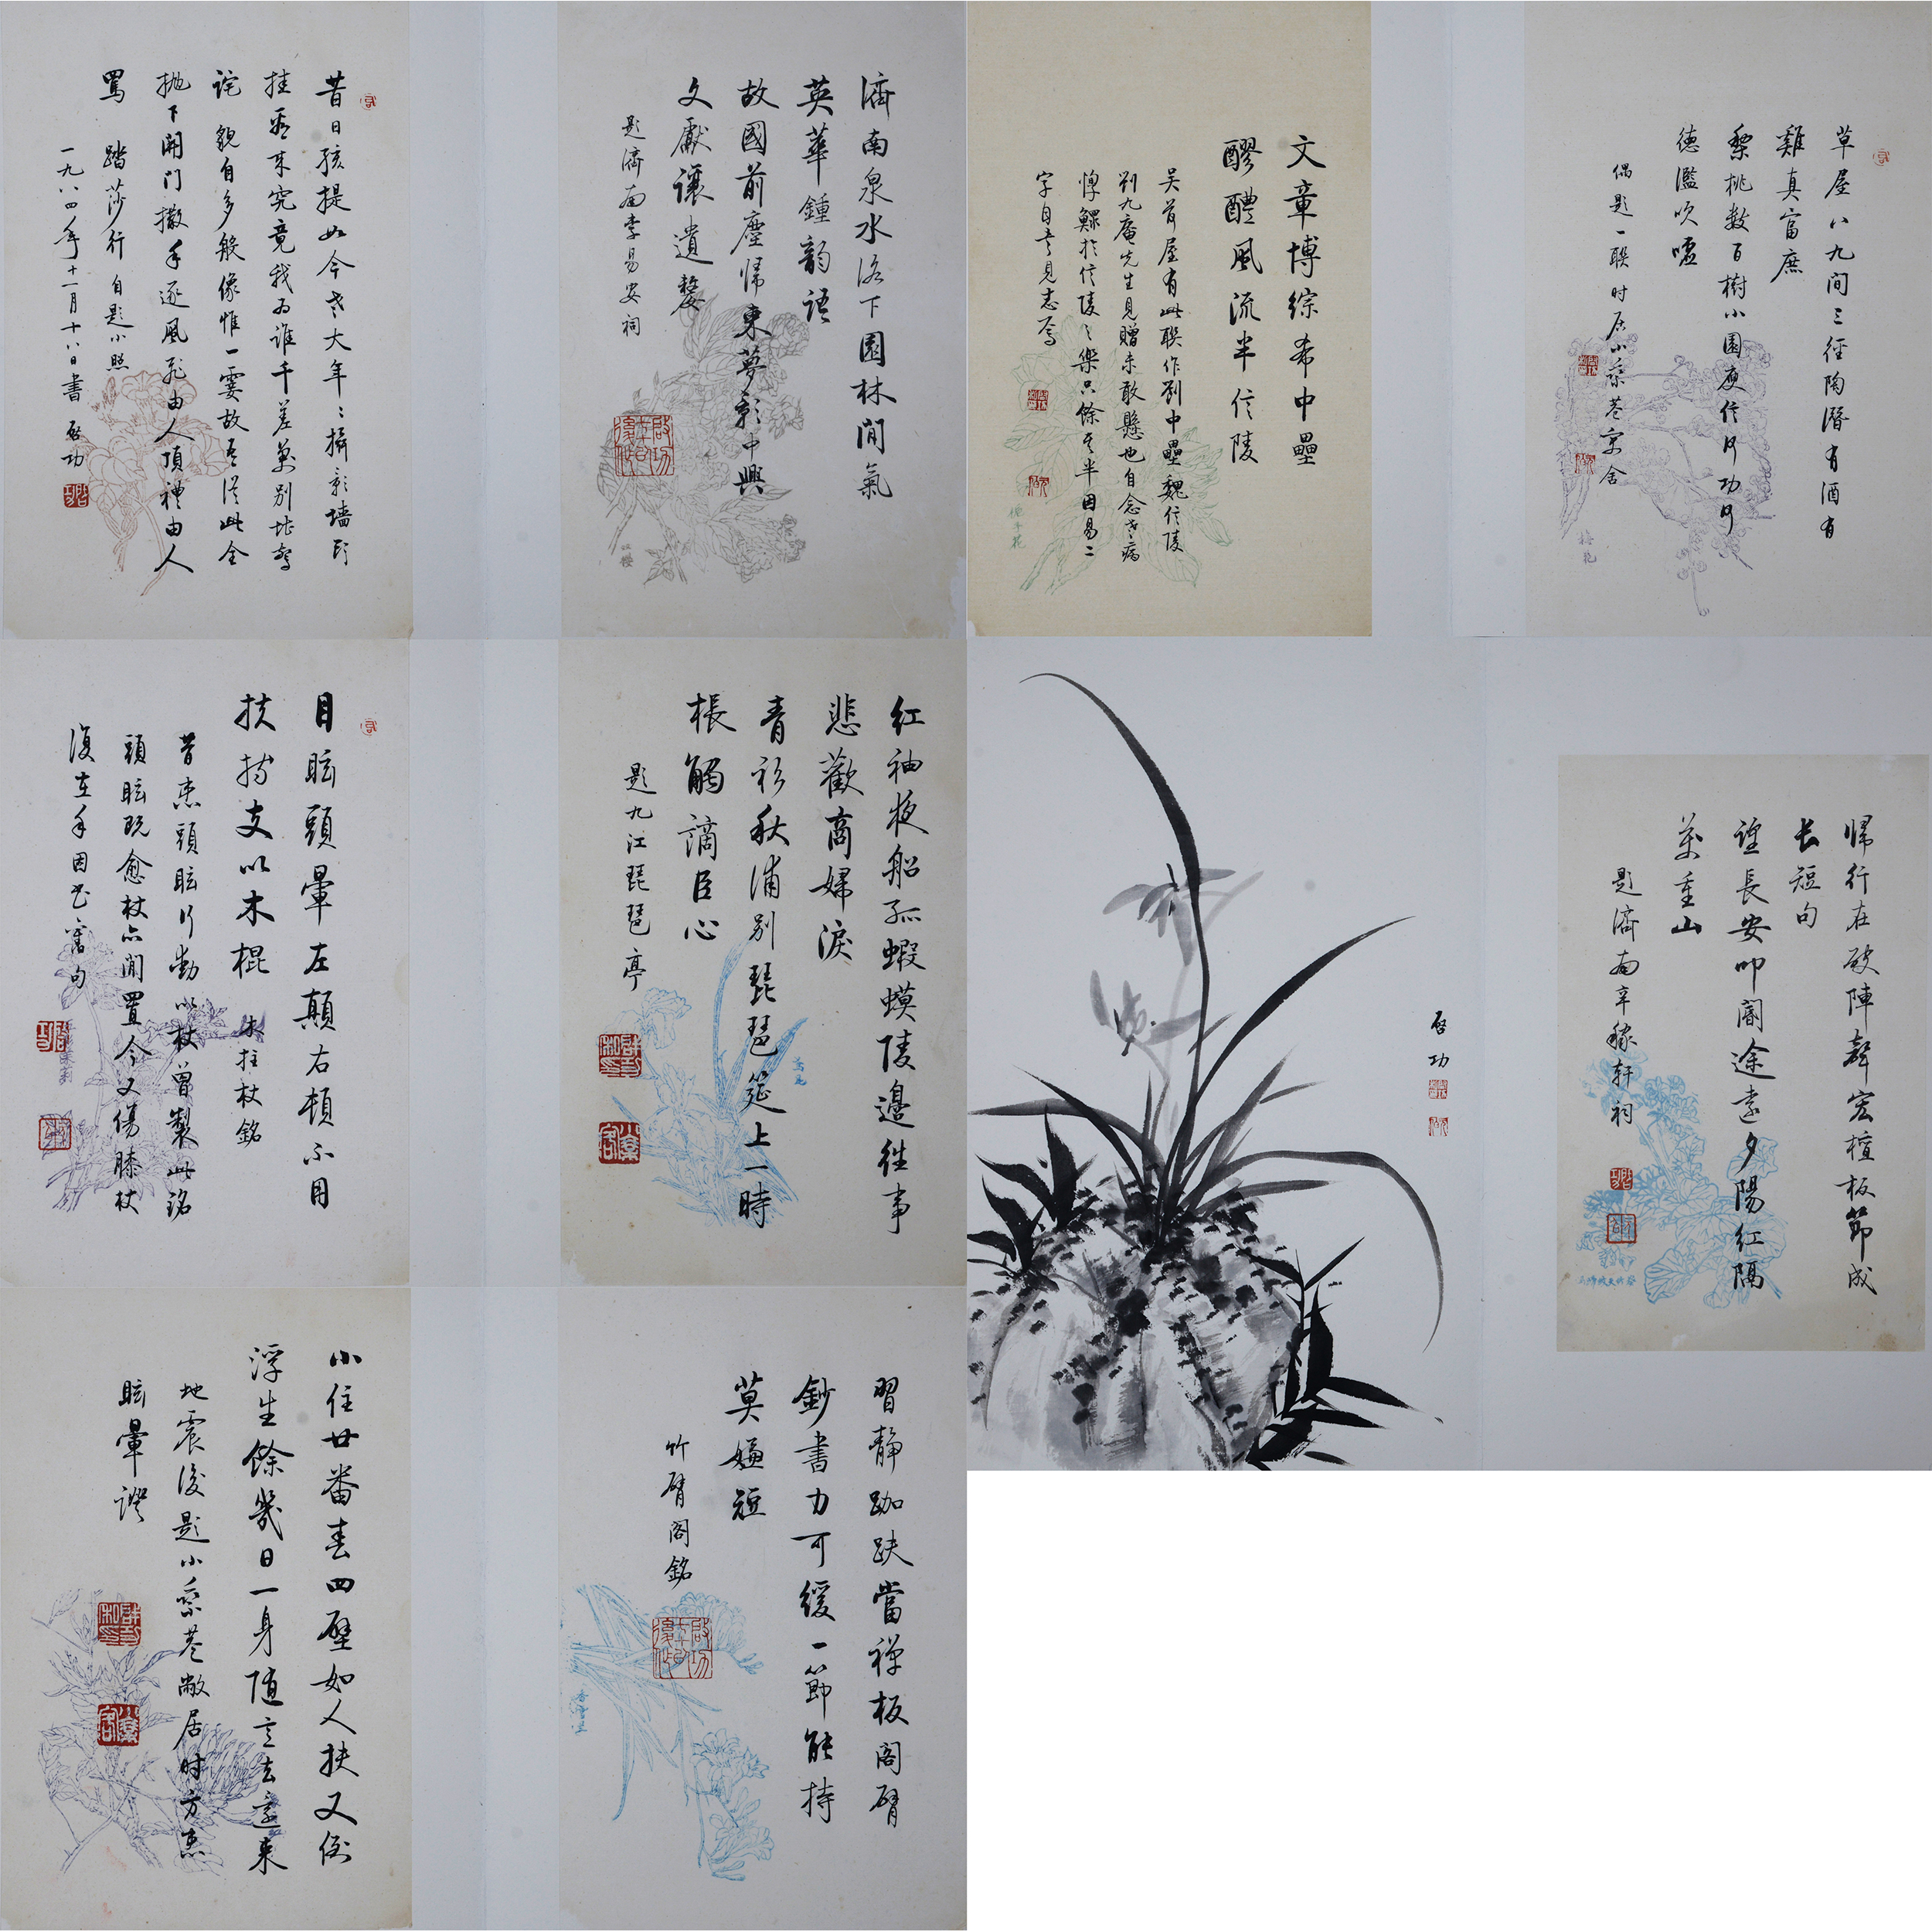 草屋八九間三径陶潛有酒有
雞真富庶
梨桃數百樹小園庾信何功何
德濫吹噓
偶題一聯时居小乘巷寓舍
文章博綜希中壘
醪醴風流半信陵
吴荷屋有此聯作劉中壘魏信陵
劉九庵先生見贈未敢懸也自念老病
惸鰥於信陵之樂只餘其半因易二
字自書見志焉
濟南泉水洛下園林閒氣
英華鍾韵语
故國前塵歸來夢影中興
文獻讓遺嫠
题濟南李易安祠
昔日孩提如今老大年〻攝影墙頭
挂看来究竟我为谁千差萬别堪驚
诧 貌自多般像惟一霎故吾從此全
抛下開门撒手逐風飛由人頂禮由人
罵 踏莎行 自题小照
一九八四年十一月十八日書 启功
歸行在破陣聲宏檀板節成
长短句
望長安叩閽途远夕陽红隔
萬重山
题濟南辛稼轩祠
启功
红袖夜船孤蝦蟆陵邊往事
悲歡商婦淚
青衫秋浦别琵琶筵上一時
棖觸謫臣心
题九江琵琶亭
目眩頭暈左顛右頓不用
扶持支以木棍 木拄杖銘
昔患頭眩行動以杖曾製此銘
頭眩既愈杖亦閒置今又傷膝杖
復在手因书舊句
習静跏趺當禅板閣臂
鈔書力可緩一節能持
莫嫌短
竹臂阁銘
小住廿番春四壁如人扶又倒
浮生餘幾日一身随意去還来
地震後题小乘巷敝居时方患
眩暈證